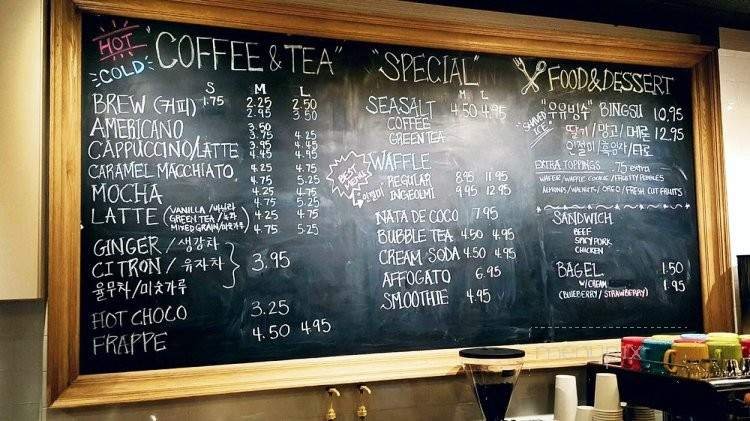 HOT
COLD
"COFFEE & TEA"
S M L
BREW (커피) 1.75 2.25 2.50
2.95 3.50
AMERICANO 3.50
3.75 4.25
CAPPUCCINO/LATTE 3.95 4.45
4.45 4.95
CARAMEL MACCHIATO 4.25 4.75
4.75 5.25
MOCHA 4.25 4.75
4.75 5.25
LATTE (VANILLA/바닐라 GREEN TEA/녹차 MIXED GRAIN/미숫가루) 4.25 4.75
4.75 5.25
GINGER / 생강차
CITRON / 유자차 3.95
율무차/미숫가루
HOT CHOCO 3.25
FRAPPE 4.50 4.95
"SPECIAL"
M L
SEASALT 4.50 4.95
COFFEE
GREEN TEA
BEST MENU
WAFFLE
REGULAR 8.95 11.95
INGEOLMI 9.95 12.95
NATA DE COCO 7.95
BUBBLE TEA 4.50 4.95
CREAM SODA 4.50 4.95
AFFOGATO 6.95
SMOOTHIE 4.95
FOOD & DESSERT
SHAVED ICE
"우유빙수" BINGSU 10.95
딸기/망고/메론 12.95
인절미/흑임자/타로
EXTRA TOPPINGS .75 extra
WAFER/WAFFLE COOKIE/FRUITY PEBBLES
ALMONDS/WALNUT/OREO/FRESH CUT FRUITS
SANDWICH
BEEF
SPICY PORK
CHICKEN
BAGEL 1.50
W/CREAM 1.95
(BLUEBERRY/STRAWBERRY)
menupix